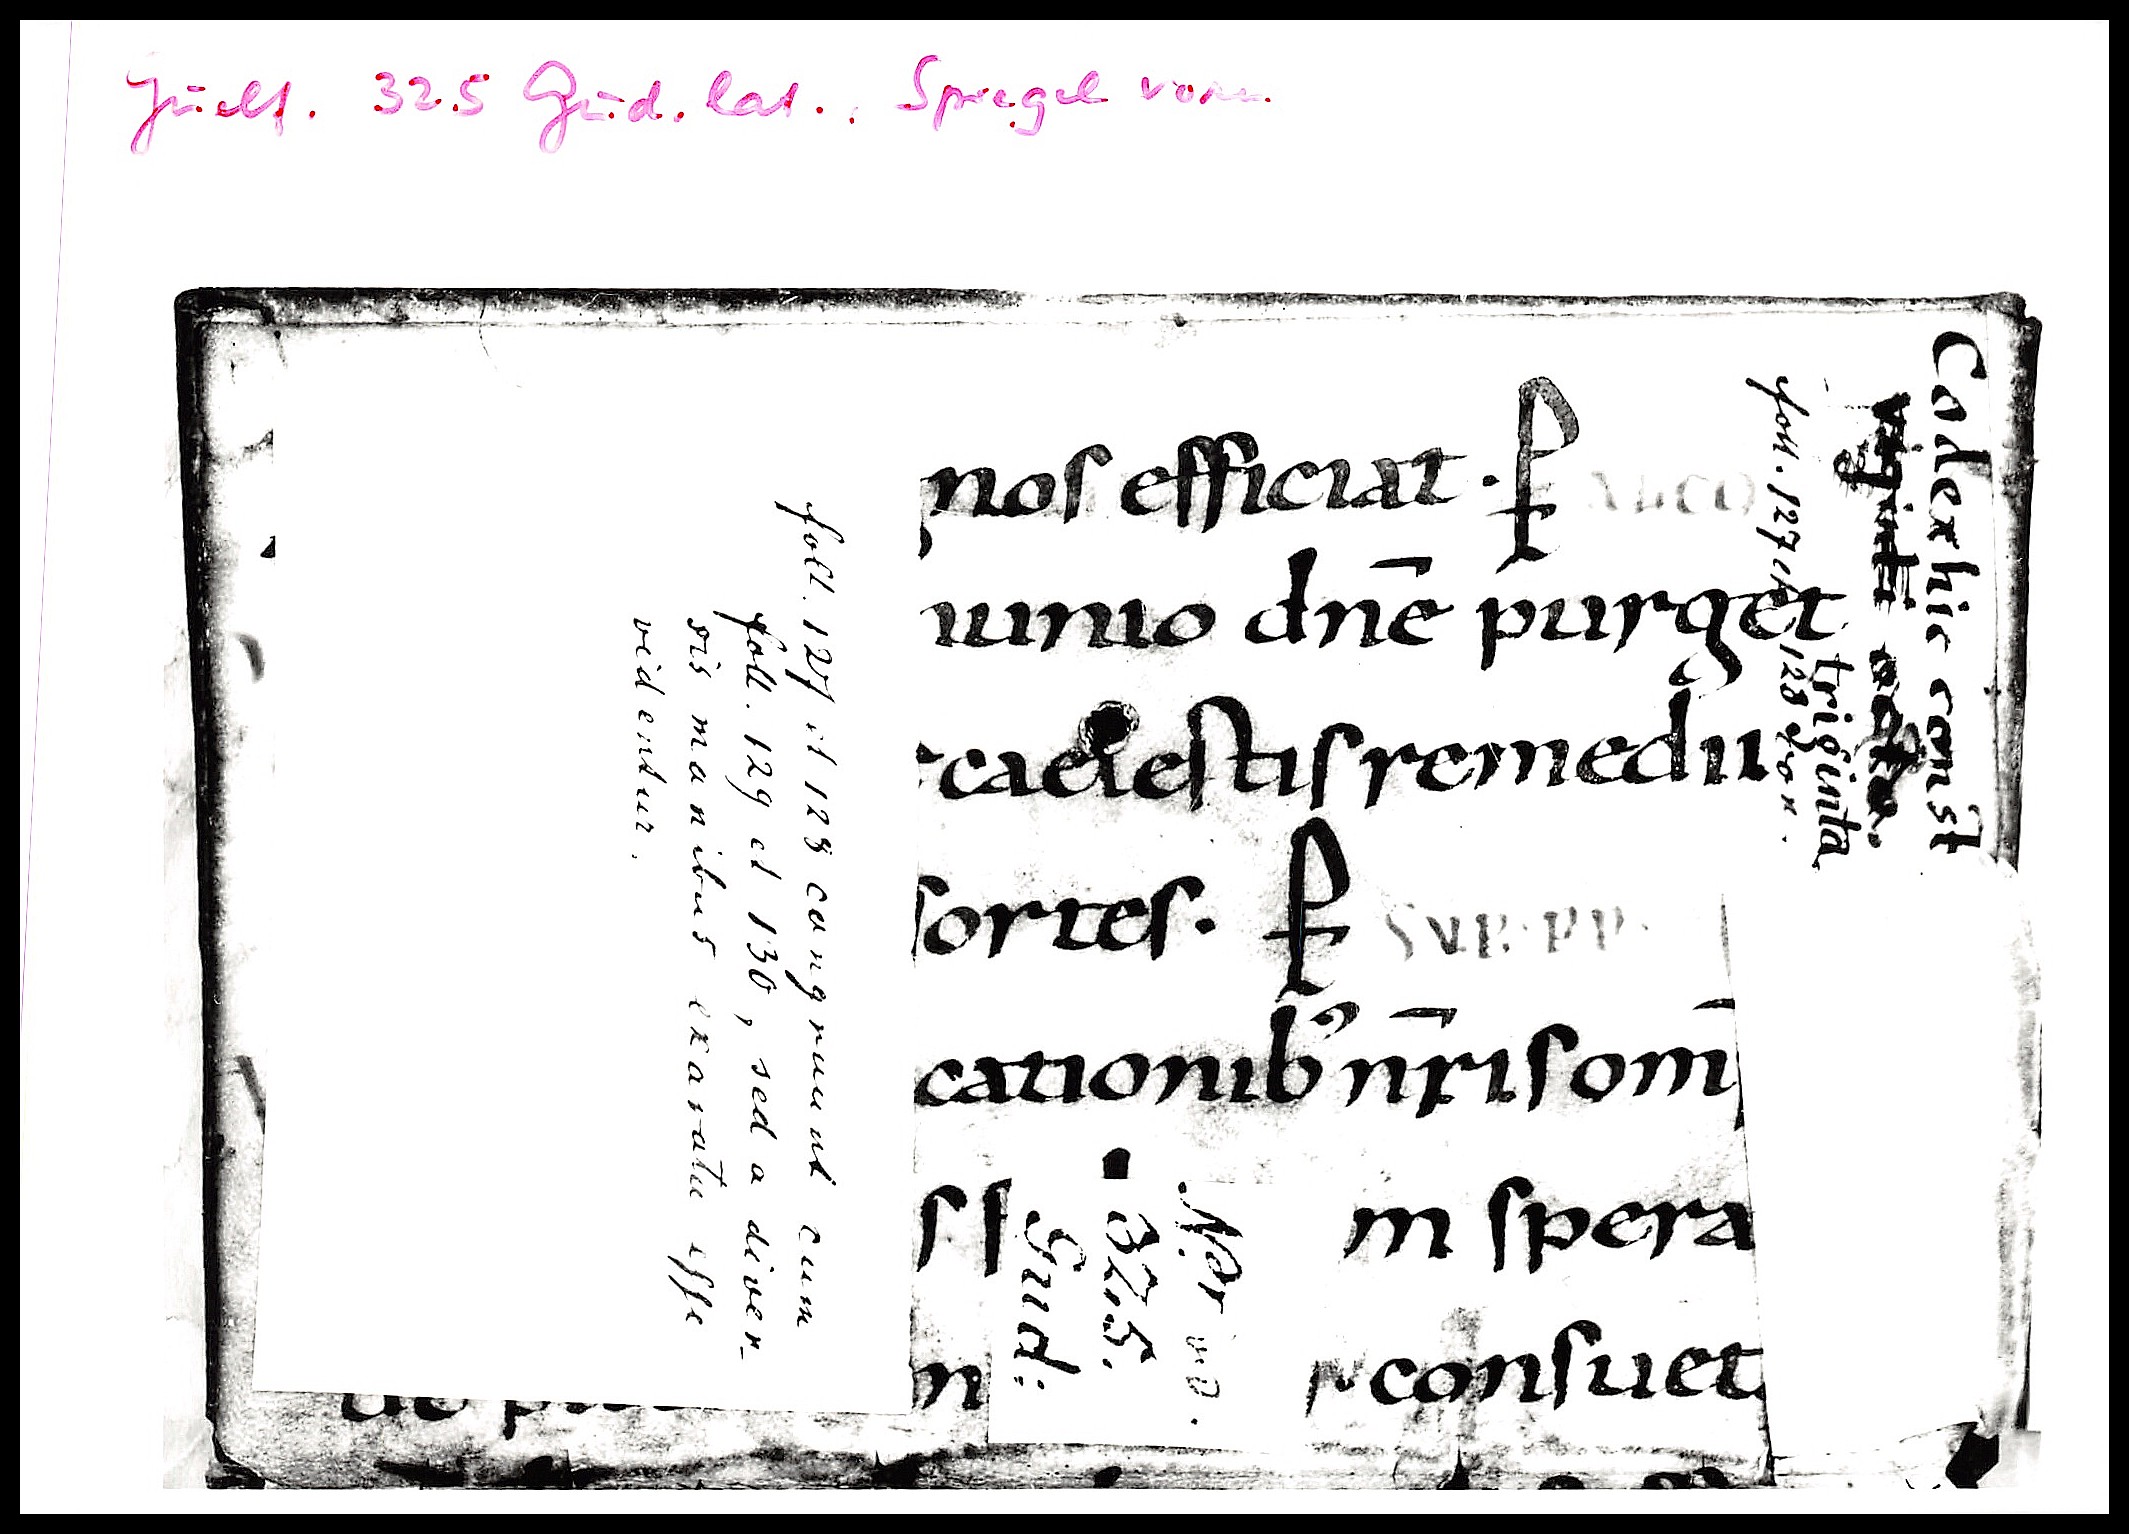 Guelf. 325 Gud. lat. Spiegel vorn
nos efficiat · P AD CO
iunio dnē purget
caelestis remedii
sortes · P SUP· PP·
cationib' nr̄is om̄
ss m spera
n consuet
Codex hic const
viginti octo
triginta
foll. 127 et 128 vor.
foll. 127 et 128 congruunt cum
foll. 129 et 130, sed a diver-
sis manibus exarata esse
videntur.
N.or
325.
Gud: